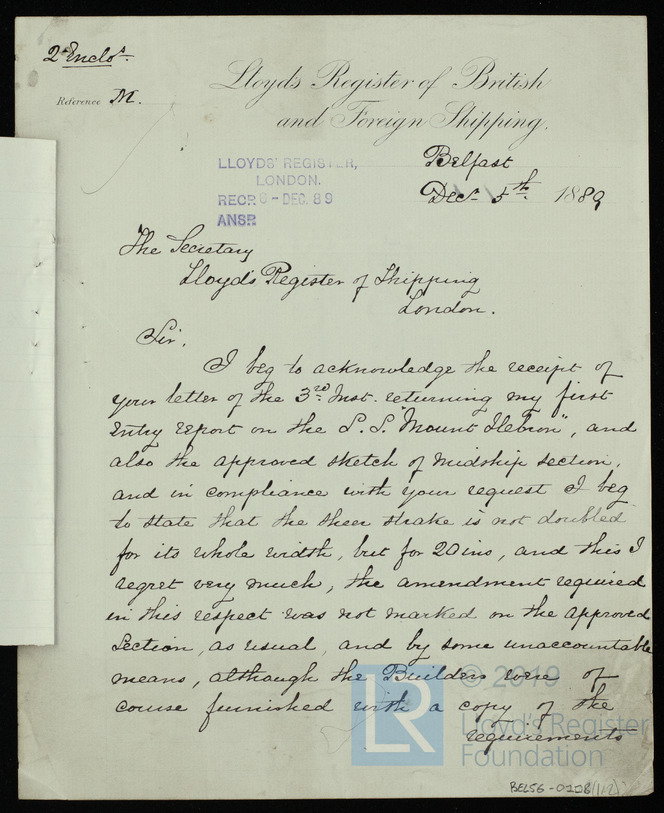 2 Enclos.
Reference M.
Lloyds Register of British
and Foreign Shipping.
LLOYDS' REGISTER,
LONDON.
RECD 6 - DEC. 89
ANSD
Belfast
Decr 5th 1889
The Secretary
Lloyd's Register of Shipping
London.
Sir,
I beg to acknowledge the receipt of
your letter of the 3rd Inst. returning my first
entry report on the S.S. "Mount Hebron", and
also the approved sketch of midship section,
and in compliance with your request I beg
to state that the sheer strake is not doubled
for its whole width, but for 20 ins, and this I
regret very much, the amendment required
in this respect was not marked on the approved
section, as usual, and by some unaccountable
means, although the Builders were of
course furnished with a copy of the
requirements
LR
© 2019
Lloyd's Register
Foundation
BEL56-0228(1,2)